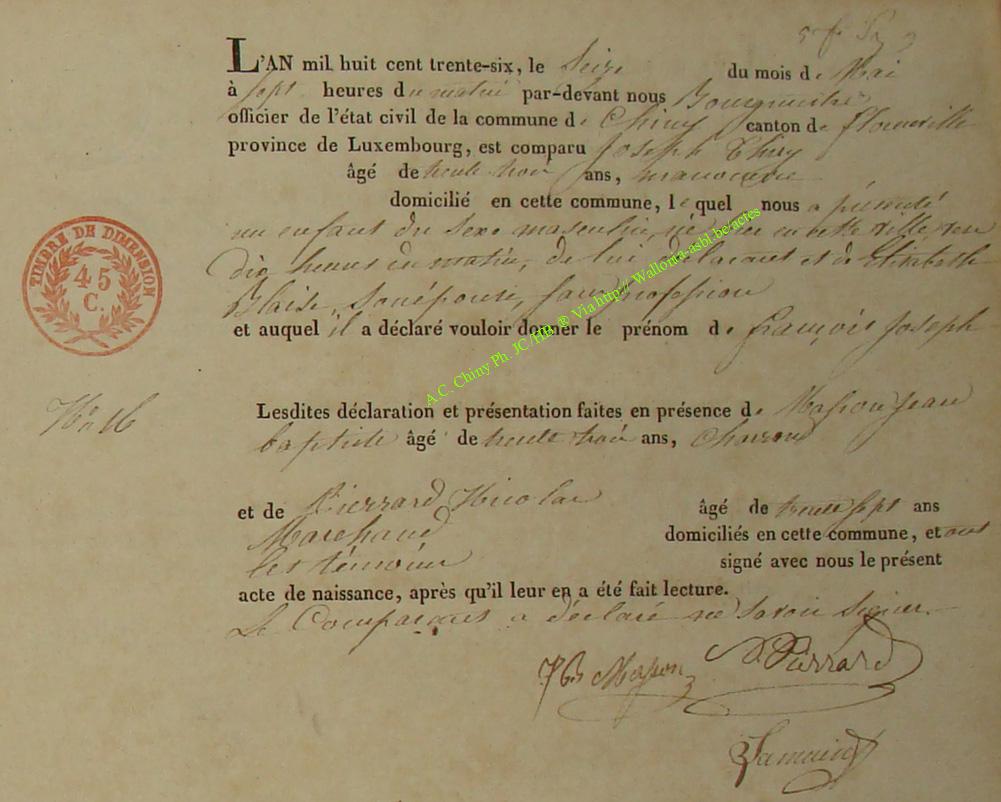 L'AN mil huit cent trente-six, le Seize du mois de Mai
à sept heures du matin par-devant nous Bourgmestre
officier de l'état civil de la commune de Chiny canton de florenville
province de Luxembourg, est comparu Joseph Thiry
âgé de trente trois ans, manoeuvre
domicilié en cette commune, le quel nous a présenté
un enfant du sexe masculin, né en cette ville
dix heures du matin, de lui déclarant et de Elisabeth
Blaise, son épouse, sans profession
et auquel il a déclaré vouloir donner le prénom de françois Joseph
TIMBRE DE DIMENSION
45
C.
A.C. Chiny Ph. JC/HB ® Via http:// Wallonia-asbl.be/actes
N° 16
Lesdites déclaration et présentation faites en présence de Masson Jean
baptiste âgé de trente trois ans, Charron
et de Pierrard Nicolas âgé de trente sept ans
Marchand domiciliés en cette commune, et ont
les témoins signé avec nous le présent
acte de naissance, après qu'il leur en a été fait lecture.
Le Comparant a déclaré ne savoir signer.
JB Masson Pierrard